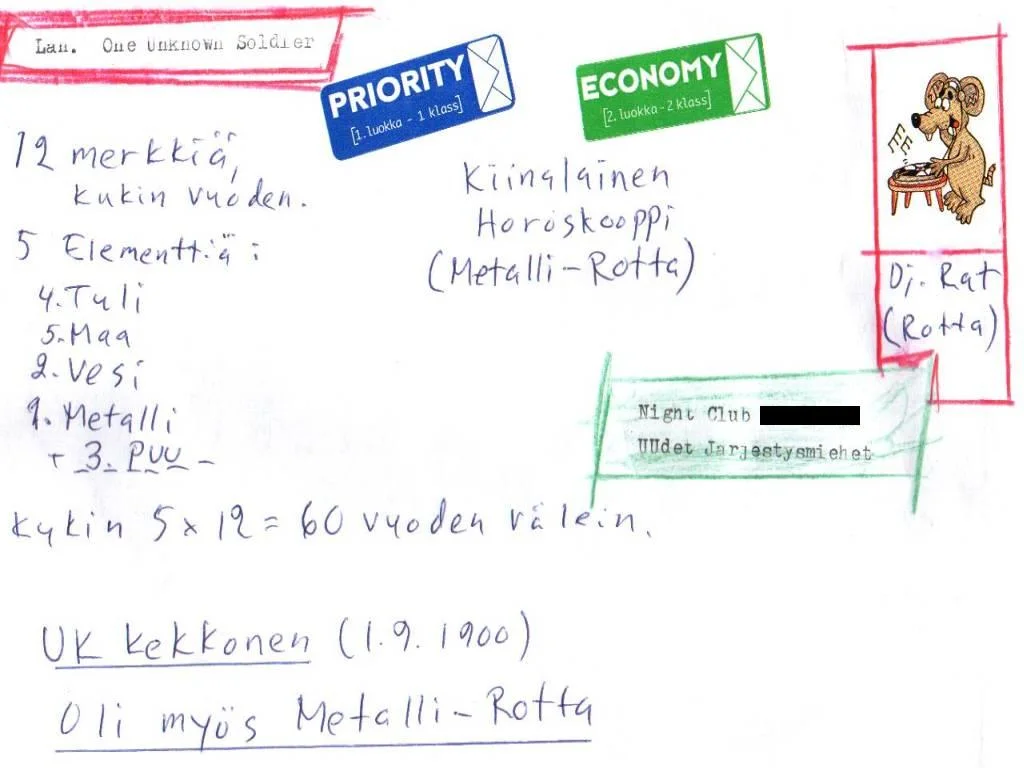 Lan. One Unknown Soldier
PRIORITY
[1.luokka - 1 klass]
ECONOMY
[2.luokka - 2 klass]
12 merkkiä,
kukin vuoden.
5 Elementtiä:
4. Tuli
5. Maa
2. Vesi
1. Metalli
+ 3. Puu -
Kiinalainen
Horoskooppi
(Metalli-Rotta)
Dj. Rat
(Rotta)
Night Club
UUdet Jarjestysmiehet
Kukin 5 x 12 = 60 vuoden välein.
UK Kekkonen (1.9.1900)
Oli myös Metalli-Rotta